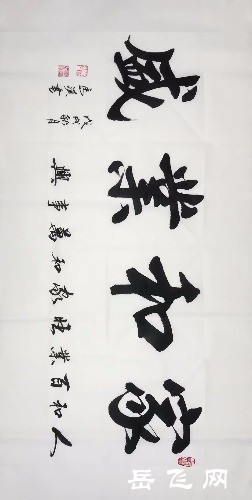 家和業盛
人和百業旺家和萬事興
戊戌
岳飞网